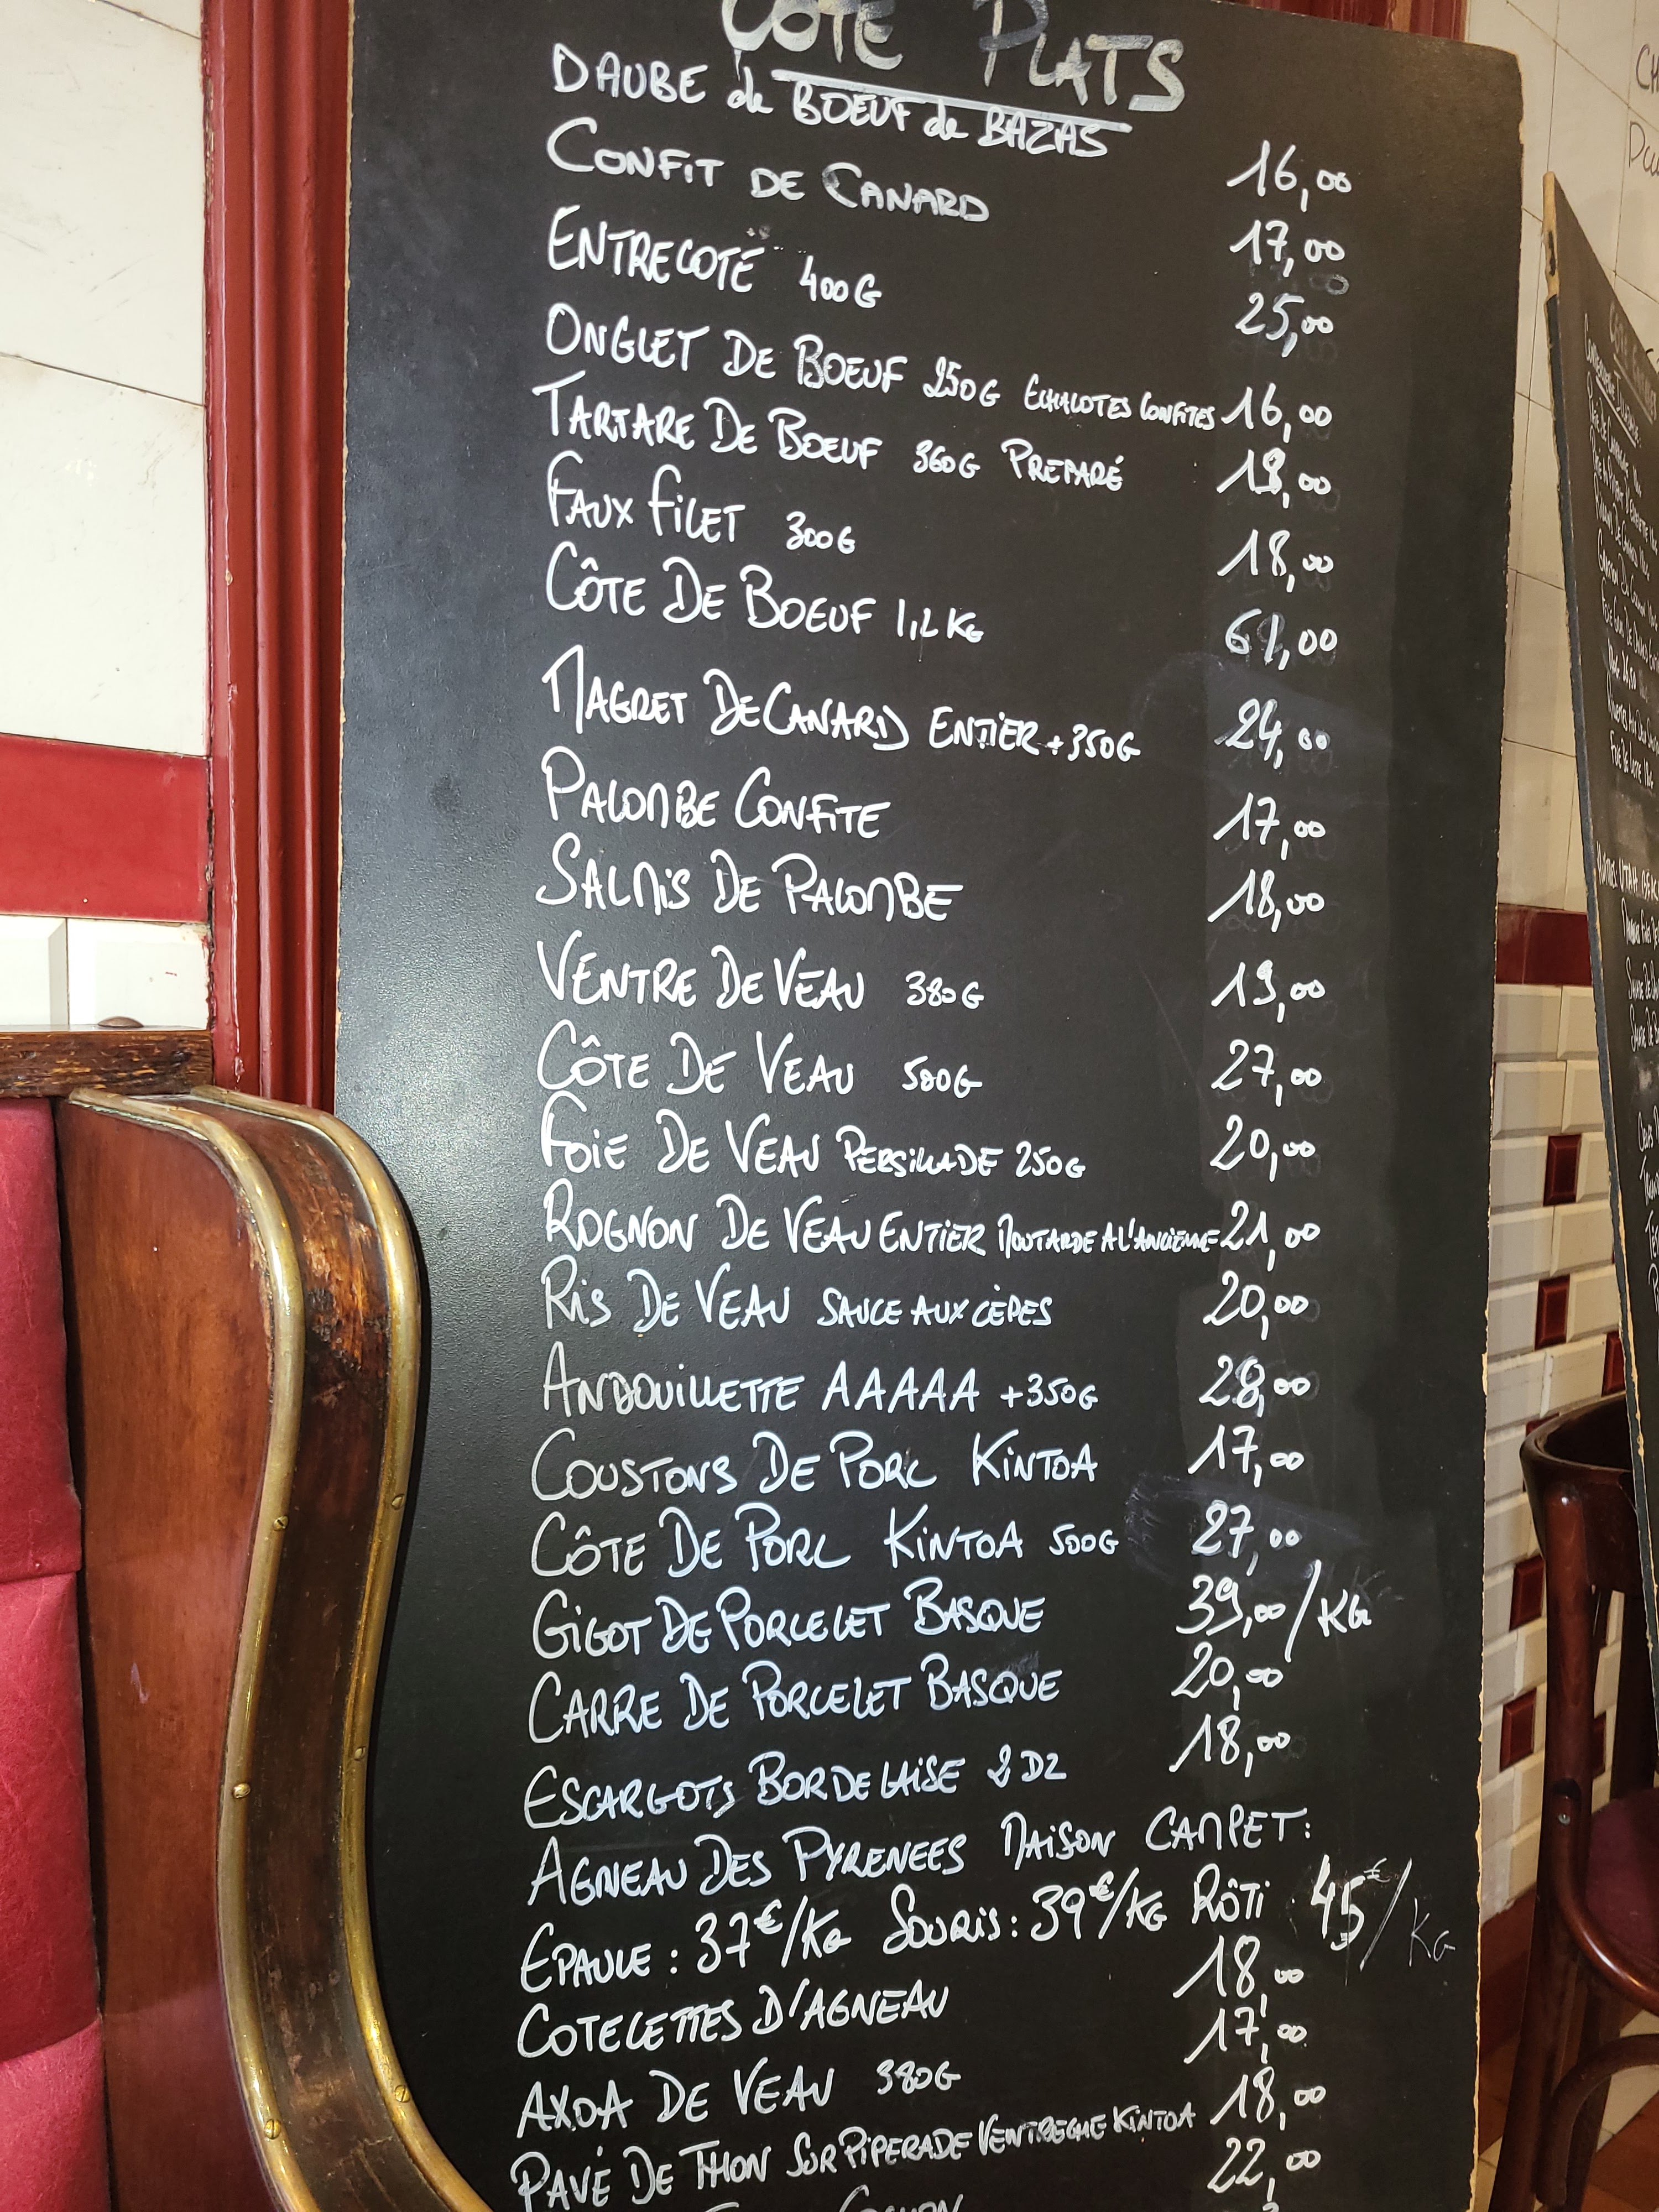 CÔTÉ PLATS
DAUBE de BOEUF de BAZAS 16,00
CONFIT DE CANARD 17,00
ENTRECOTE 400G 25,00
ONGLET DE BOEUF 250G ECHALOTES CONFITES 16,00
TARTARE DE BOEUF 360G PREPARÉ
FAUX FILET 300G 18,00
CÔTE DE BOEUF 1,2 KG 61,00
MAGRET DE CANARD ENTIER +350G 24,00
PALOMBE CONFITE 17,00
SALMIS DE PALOMBE 18,00
VENTRE DE VEAU 380G 19,00
CÔTE DE VEAU 500G 27,00
FOIE DE VEAU PERSILLADE 250G 20,00
ROGNON DE VEAU ENTIER MOUTARDE A L'ANCIENNE 21,00
RIS DE VEAU SAUCE AUX CÈPES 20,00
ANDOUILLETTE AAAAA +350G 28,00
COUSTONS DE PORC KINTOA 17,00
CÔTE DE PORC KINTOA 500G 27,00
GIGOT DE PORCELET BASQUE 39,00/KG
CARRE DE PORCELET BASQUE 20,00
ESCARGOTS BORDELAISE 2 DZ 18,00
AGNEAU DES PYRENEES MAISON CAMPET:
EPAULE : 37€/KG SOURIS : 39€/KG RÔTI 45€/KG
COTELETTES D'AGNEAU 18,00
17,00
AXOA DE VEAU 380G 18,00
PAVÉ DE THON SUR PIPERADE VENTRECHE KINTOA 22,00